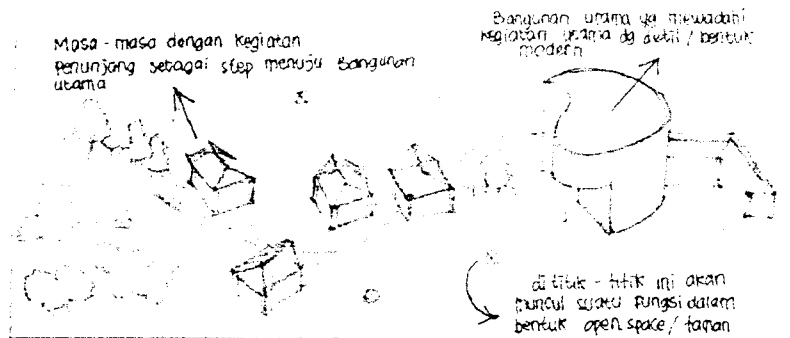 Masa - masa dengan kegiatan
Penunjang sebagai step menuju Bangunan
utama
Bangunan utama yg mewadahi
kegiatan utama dg detil / bentuk
modern
di titik - titik ini akan
muncul suatu fungsi dalam
bentuk open space / taman